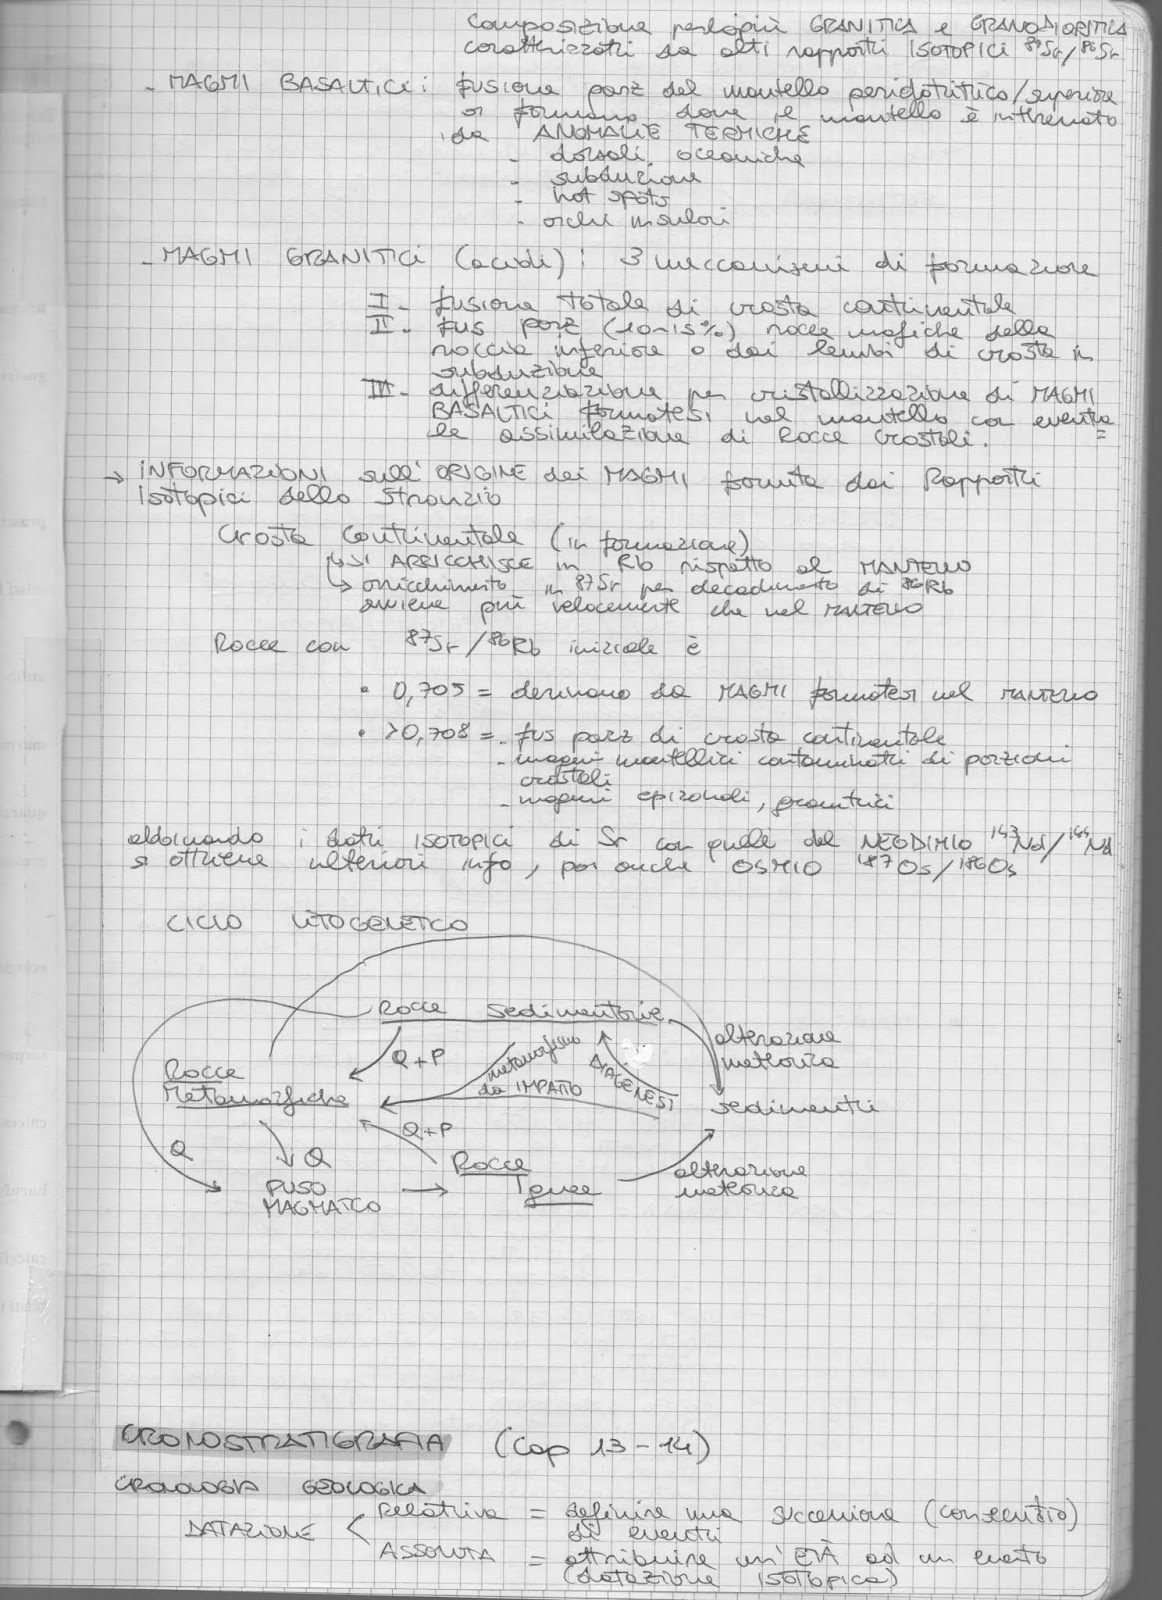 composizione perlopiù GRANITICA e GRANODIORITICA
caratterizzati da alti rapporti ISOTOPICI ⁸⁷Sr/⁸⁶Sr
- MAGMI BASALTICI: fusione parz del mantello peridotitico/superiore
si formano dove il mantello è interessato
da ANOMALIE TERMICHE
- dorsali oceaniche
- subduzione
- hot spots
- archi insulari
- MAGMI GRANITICI (acidi): 3 meccanismi di formazione
I - fusione totale di crosta continentale
II - fus parz (10-15%) rocce mafiche della
roccia inferiore o dai lembi di crosta in
subduzione
III - differenziazione per cristallizzazione di MAGMI
BASALTICI formatesi nel mantello con eventua=
le assimilazione di Rocce crostali.
→ INFORMAZIONI sull'ORIGINE dei MAGMI fornita dai Rapporti
isotopici dello Stronzio
Crosta Continentale (in formazione)
↳ SI ARRICCHISCE in Rb rispetto al MANTELLO
↳ arricchimento in ⁸⁷Sr per decadimento di ⁸⁶Rb
avviene più velocemente che nel MANTELLO
Rocce con ⁸⁷Sr/⁸⁶Rb iniziale è
• 0,705 = derivano da MAGMI formatesi nel MANTELLO
• >0,708 = - fus parz di crosta continentale
- magmi mantellici contaminati di porzioni
crostali
- magmi epizonali, granitici
abbinando i dati ISOTOPICI di Sr con quelli del NEODIMIO ¹⁴³Nd/¹⁴⁴Nd
si ottiene ulteriori info, poi anche OSMIO ¹⁸⁷Os/¹⁸⁶Os
CICLO LITOGENETICO
Rocce Sedimentarie
alterazione
meteorica
Q+P
metamorfismo
da IMPATTO
DIAGENESI
Rocce
Metamorfiche
sedimenti
Q+P
Q
Q
Rocce
Ignee
FUSO
MAGMATICO
alterazione
meteorica
CRONOSTRATIGRAFIA (Cap 13-14)
CRONOLOGIA GEOLOGICA
DATAZIONE < Relativa = definire una successione (consecutio)
di eventi
ASSOLUTA = attribuire un'ETÀ ad un evento
(datazione ISOTOPICA)